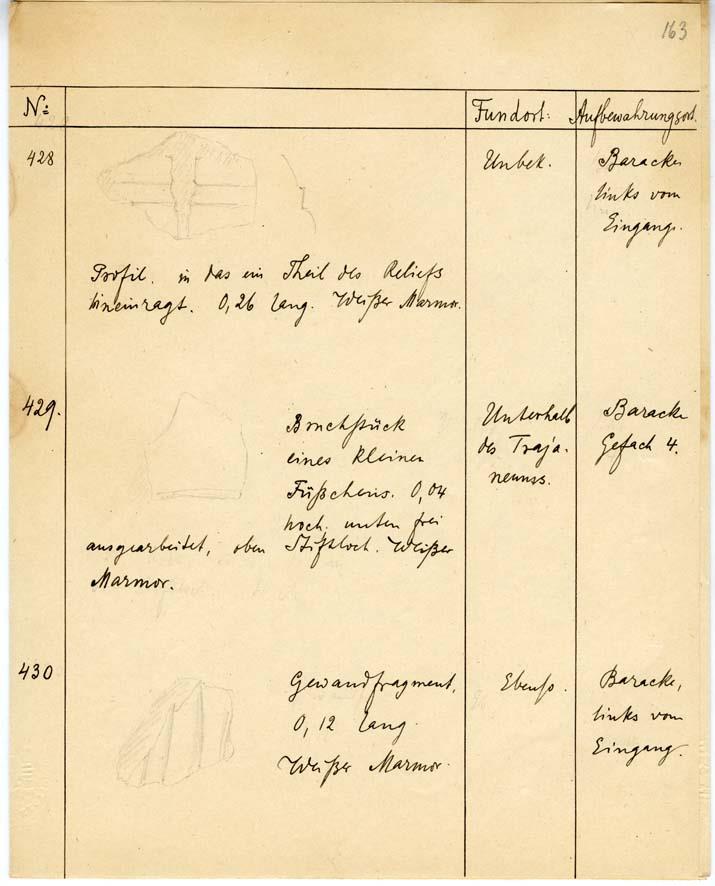 163
Nº: Fundort: Aufbewahrungsort.
428 Unbek. Baracke
links vom
Eingang.
Profil. in das ein Theil des Reliefs
hineinragt. 0,26 lang. Weißer Marmor.
429. Bruchstück Unterhalb Baracke
eines kleinen des Traja- Gefach 4.
Füßchens. 0,04 neums.
hoch. unten frei
ausgearbeitet, oben Stiftloch. Weißer
Marmor.
430 Gewandfragment, Ebenso. Baracke,
0,12 lang. links vom
Weißer Marmor. Eingang.